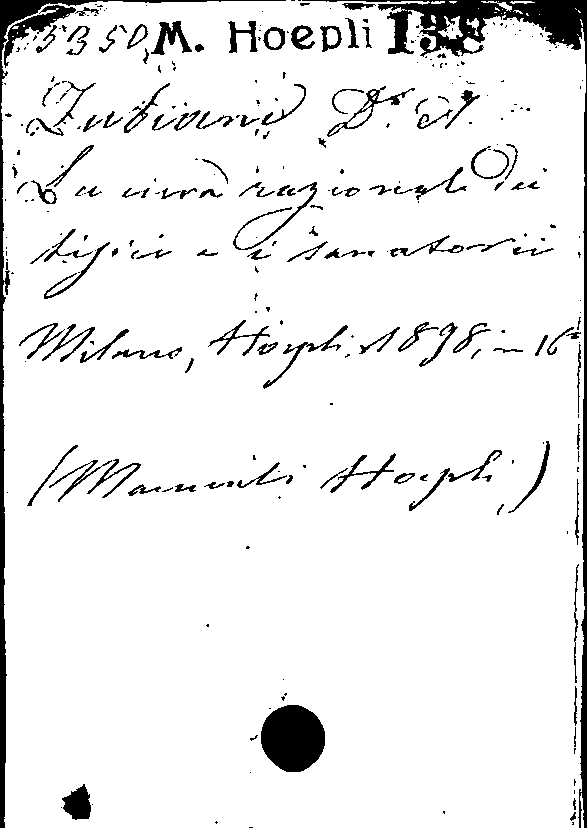 5350, M. Hoepli 138
Zubiani Dr. A.
La cura razionale dei
tisici e i sanatorii
Milano, Hoepli, 1898, in 16°
(Manuali Hoepli,)